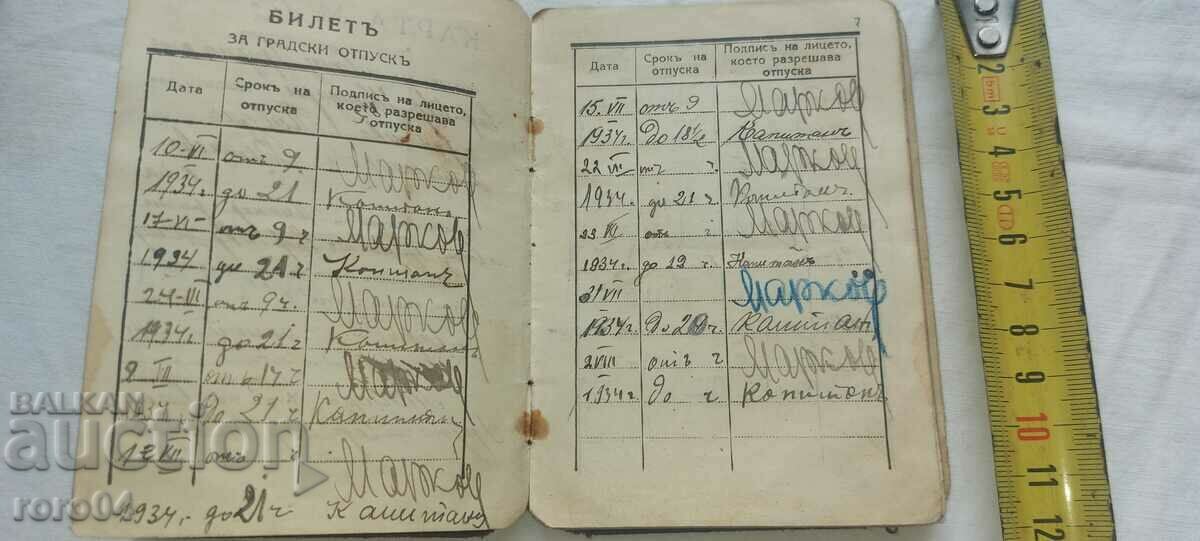 БИЛЕТЪ
ЗА ГРАДСКИ ОТПУСКЪ
Дата Срокъ на отпуска Подписъ на лицето, което разрешава отпуска
10-VI отъ 9 Марков
1934г. до 21 Капитанъ
17-VI- отъ 9 ч Марков
1934 до 21 ч Капитанъ
отъ 9 ч. Марков
1934г. до 21 ч Капитанъ
2 отъ 14 ч Марков
1934. до 21 ч Капитанъ
VII отъ ч Марков
1934г. до 21 ч Капитанъ
7
Дата Срокъ на отпуска Подписъ на лицето, което разрешава отпуска
15. VII отъ 9 Марков
1934г. До 18½ Капитанъ
22 VII отъ ч. Марков
1934г. до 21 ч. Капитанъ.
отъ ч Марков
1934г. до 19 ч. Капитанъ
31 VII Марков
1934г. До 20 ч. Капитанъ
2 VIII отъ ч Марков
1934г. до ч Капитанъ
BALKAN
auction
roro04
2 3 4 5 6 7 8 9 10 11 12